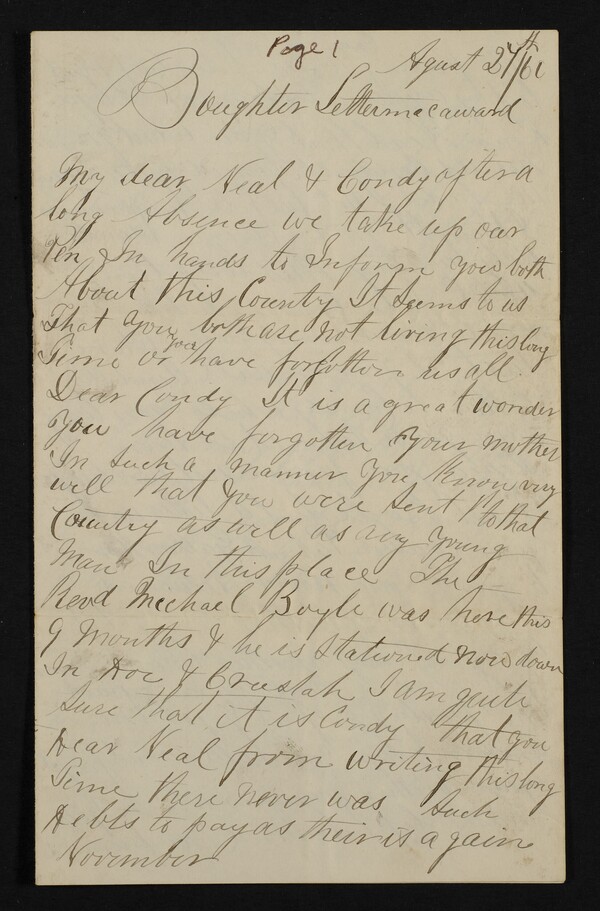 Page 1
Agust 27th/61
Boughter Lettermacaward
My dear Neal & Condy after a
long Absence we take up our
Pen In hands to Inform you both
About this County It seems to us
That you both are not living this long
Time or you have forgotten us all.
Dear Condy It is a great wonder
you have forgotten your mother
In such a manner you know very
well that you were sent to that
Country as well as any young
Man In this place The
Revd Michael Boyle was here this
9 Months & he is stationed now down
In Doe & I am quite
sure that it is Condy that you
Dear Neal from writing this long
Time there never was such
Debts to pay as their is again
November